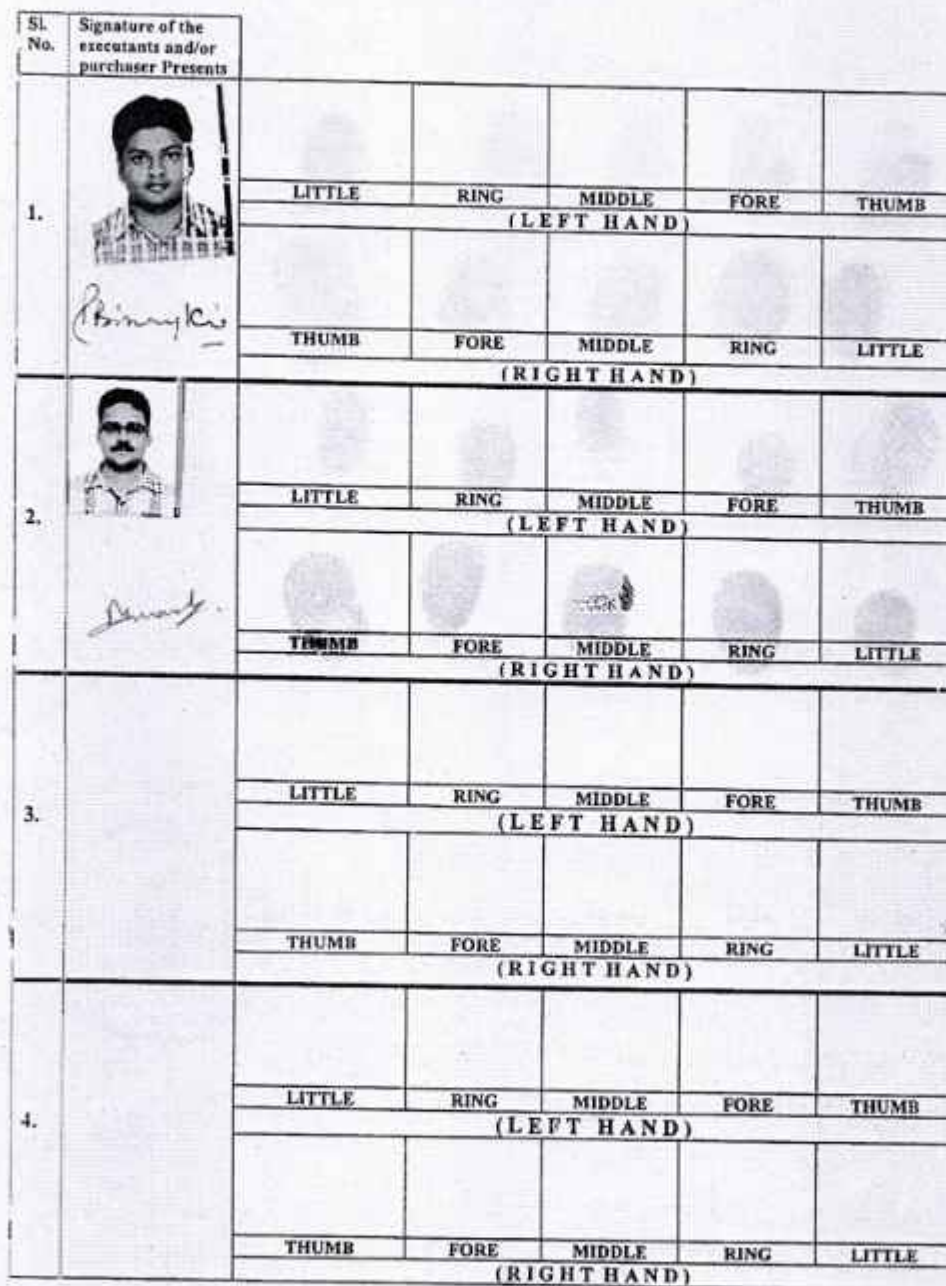 Sl. No. Signature of the executants and/or purchaser Presents
1.
LITTLE RING MIDDLE FORE THUMB
(LEFT HAND)
THUMB FORE MIDDLE RING LITTLE
(RIGHT HAND)
2.
LITTLE RING MIDDLE FORE THUMB
(LEFT HAND)
THUMB FORE MIDDLE RING LITTLE
(RIGHT HAND)
3.
LITTLE RING MIDDLE FORE THUMB
(LEFT HAND)
THUMB FORE MIDDLE RING LITTLE
(RIGHT HAND)
4.
LITTLE RING MIDDLE FORE THUMB
(LEFT HAND)
THUMB FORE MIDDLE RING LITTLE
(RIGHT HAND)